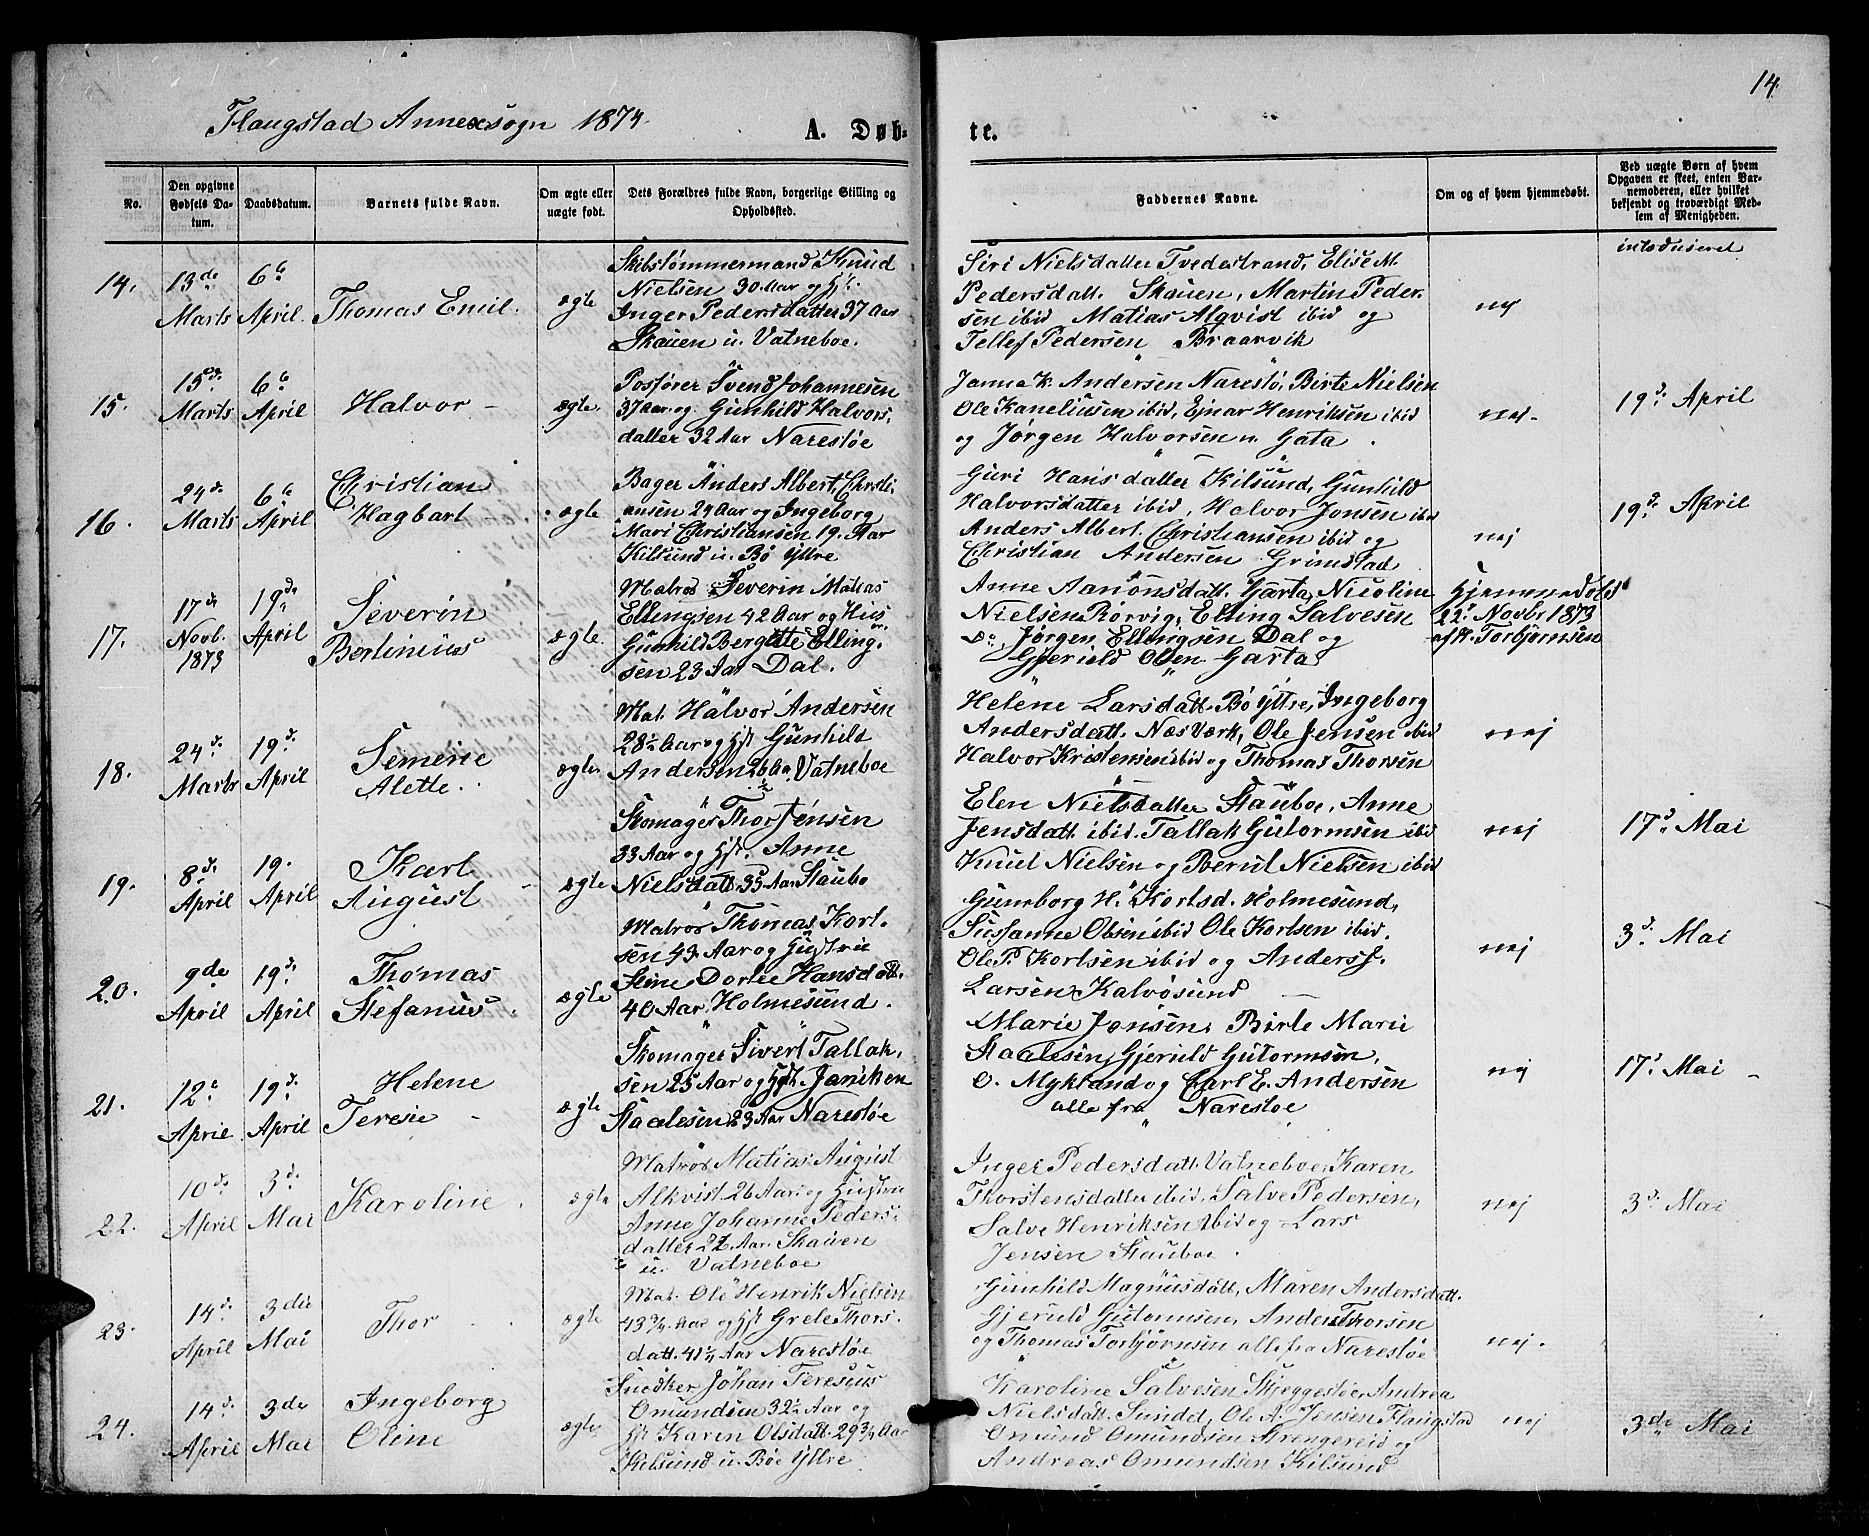 14.
Flaugstad Annexsogn 1874.
A. Døb-
te.
No.
Den opgivne Fødsels Datum.
Daabsdatum.
Barnets fulde Navn.
Om ægte eller uægte født.
Dets Forældres fulde Navn, borgerlige Stilling og Opholdssted.
Faddernes Navne.
Om og af hvem hjemmedøbt.
Ved uægte Børn af hvem Opgaven er skeet, enten Barnemoderen, eller hvilket bekjendt og troværdigt Medlem af Menigheden.
introduseret
14.
13de Marts
6te April
Thomas Emil.
ægte
Skibstømmermand Knud
Nielsen 30 Aar og Hst.
Inger Pedersdatter 37 Aar
Skauen u. Vatneboe.
Siri Nielsdatter Tvedestrand, Elise M.
Pedersdatt. Skauen, Martin Peder-
sen ibid Matias Alqvist ibid og
Tellef Pedersen Braarvik
nej
15.
15de Marts
6te April
Halvor
ægte.
Postfører Svend Johannesen
37 Aar og Gunhild Halvors-
datter 32 Aar Narestøe
Janna K. Andersen Narestø, Birte Nielsen
Ole Kaneliussen ibid, Ejnar Henriksen ibid
og Jørgen Halvorsen u. Gata.
nej.
19d. April
16.
24de Marts
6te April
Christian
Hagbart
ægte
Bager Anders Albert Christi-
ansen 24 Aar og Ingeborg
Mari Christiansen 19. Aar
Kilsund u. Bø Yttre
Guri Hansdatter Kilsund, Gunhild
Halvorsdatter ibid, Halvor Jonsen ibid
Anders Albert Christiansen ibid og
Christian Andersen Grimstad
nej
19d. April
17.
17de Novb. 1873
19de April
Severin
Bertinius
ægte.
Matros Severin Matias
Ellingsen 42 Aar og Hus
Gunhild Bergitte Elling-
sen 23 Aar Dal.
Anne Aanonsdatt. Garta, Nicoline
Nielsen Rørvig, Elling Salvesen
Do, Jørgen Ellingsen Dal og
Gjeruld Olsen Garta
Hjemmedøbt
22. Novbr 1873
af K. Torbjørnsen
18.
24de Marts
19d. April
Semerie
Alette.
ægte.
Mat. Halvor Andersen
28½ Aar og Hst Gunhild
Andersen 26 Aar Vatneboe
Helene Larsdatt. Bø Yttre, Ingeborg
Andersdatt. Næs Værk, Ole Jensen ibid
Halvor Kristensen ibid og Thomas Thorsen
nej
19.
8d. April
19. April
Karl
August
ægte
Skomager Thor Jensen
33 Aar og Hst. Anne
Nielsdatt. 35 Aar Staubo
Elen Nielsdatter Stauboe, Anne
Jensdatt. ibid. Tallak Gutormsen ibid
Knud Nielsen og Berul Nielsen ibid
nej
17d. Mai
20.
9de April
19d. April
Thomas
Stefanus.
ægte
Matros Thomas Korl-
sen 43 Aar og Hustrue
Sine Dorte Hansdatt.
40 Aar. Holmesund.
Gunborg H. Korlsd. Holmesund,
Sussanne Olsen ibid Ole Korlsen ibid.
Ole P. Korlsen ibid og Anders J.
Larsen Kalvøsund
nej
3d. Mai
21.
12te April
19d. April
Helene
Teresie
ægte
Skomager Sivert Tallak-
sen 25 Aar og Hst. Janiken
Staalesen 23 Aar Narestøe
Marie Jonsen, Birte Marie
Staalesen, Gjeruld Gutormsen,
O. Mykland og Carl E. Andersen
alle fra Narestøe
nej
17d. Mai
22.
10de April
3d. Mai
Karoline
ægte
Matros Matias August
Alkvist 26 Aar og Hustrue
Anne Johanne Peders-
datter 22 Aar Skauen
u. Vatneboe
Inger Pedersdatt. Vatneboe, Karen
Thorstensdatter ibid. Salve Pedersen,
Salve Henriksen ibid og Lars
Jensen Stauboe.
nej
3d. Mai
23.
14d. April
3die Mai
Thor
ægte
Mat. Ole Henrik Nielsen
43¾ Aar og Hst Grete Thors-
datt. 41 Aar Narestøe
Gunhild Magnusdatt, Maren Andersdatt.
Gjeruld Gutormsen, Anders Thorsen
og Thomas Torbjørnsen alle fra Narestøe
nej.
24.
14d. April
3die Mai
Ingeborg
Oline
ægte
Snedker Johan Teresius
Omundsen 32½ Aar og
Hst Karen Olsdatt. 29¾ Aar
Kilsund u. Bøe Yttre
Karoline Salvesen Skjeggestøe, Andrea
Nielsdatt. Sundet, Ole A. Jensen Flaugstad
Omund Omundsen Strengereid og
Andreas Omundsen Kilsund
nej
3de Mai